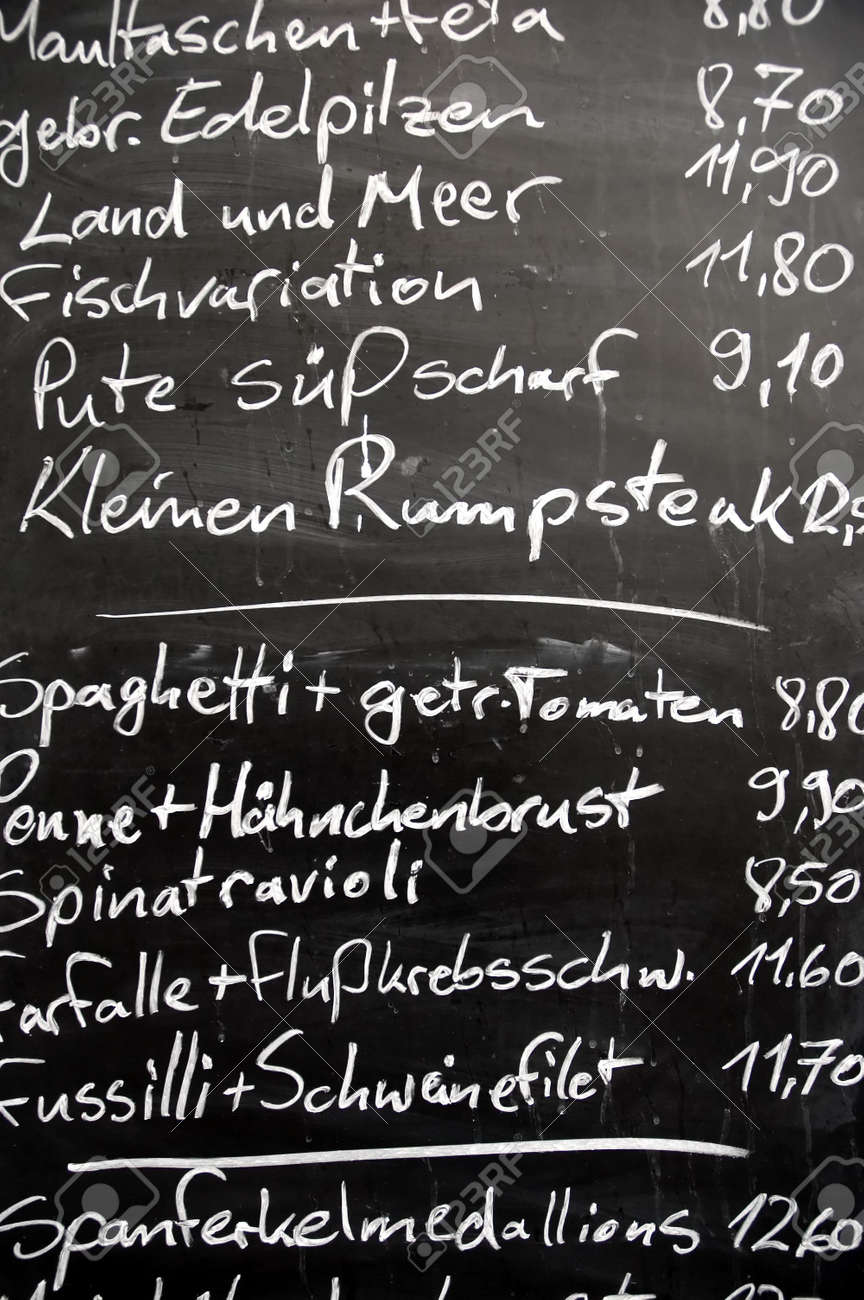 Maultaschen + Feta 8,80
gebr. Edelpilzen 8,70
Land und Meer 11,90
Fischvariation 11,80
Pute süßscharf 9,10
Kleinen Rumpsteak 12,5
Spaghetti + getr. Tomaten 8,80
Penne + Hähnchenbrust 9,90
Spinatravioli 8,50
Farfalle + Flußkrebsschw. 11,60
Fussilli + Schweinefilet 11,70
Spanferkelmedallions 12,60